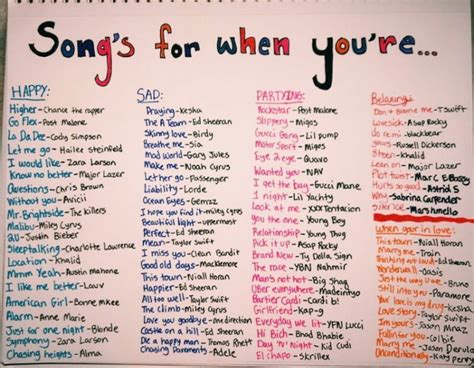 Song's for when you're...
HAPPY:
Higher-Chance the rapper
Go Flex-Post Malone
La Da Dee-Cody Simpson
Let me go-Hailee Steinfeld
I would like-Zara Larson
Know no better-Major Lazer
Questions-Chris Brown
Without you-Avicii
Mr. Brightside-The killers
Malibu-Miley Cyrus
2U-Justin Bieber
Sleeptalking-Charlotte Lawrence
Location-Khalid
Mmm Yeah-Austin Mahone
I like me better-Lauv
American Girl-Bonnie Mckee
Alarm-Anne Marie
Just for one night-Blonde
Symphony-Zara Larson
Chasing heights-Alma
SAD:
Praying-Kesha
The A Team-Ed Sheeran
Skinny love-Birdy
Breathe me-Sia
Mad world-Gary Jules
Make me-Noah Cyrus
Let her go-Passenger
Liability-Lorde
Ocean Eyes-Gemzz
I hope you find it-Miley Cyrus
Beautiful light-uppermost
Perfect-Ed Sheeran
Mean-Taylor Swift
I miss you-Clean Bandit
Good old days-Macklemore
This town-Niall Horan
Happier-Ed Sheeran
All too well-Taylor Swift
The climb-Miley Cyrus
Love you goodbye-One direction
Castle on a hill-Ed Sheeran
Dear No one-Thorne
Chasing Pavements-Adele
PARTYING:
Rockstar-Post Malone
Slippery-Migos
Gucci Gang-Lil pump
Motor Sport-Migos
Eye 2 eye-Quavo
Wanted you-NAV
I get the bag-Gucci Mane
1 night-Lil Yachty
Look at me-XXXTentacion
you the one-Young Boy
Relationship-Young Thug
Pick it up-Asap Rocky
Brand New-Ty Dolla Sign
The race-YBN Nahmir
Man's not hot-Big Shaq
Uber everywhere-Madeintyo
Bartier Cardi-Cardi b!
Girlfriend-Kap-g
Everyday we lit-YFN Lucci
Hi Bich-Bhad Bhabie
Day 'N' Night-Kid Cudi
El chapo-Skrillex
Relaxing:
Don't Blame me-T Swift
Lovesick-Asap Rocky
do re mi-blackbear
yours-Russell Dickerson
8teen-Khalid
Lean on-Major Lazer
Plot twist-Marc E Bassy
Hurts so good-Astrid S
Why-Sabrina Carpenter
Silence-Marshmello
When your in love:
This town-Niall Horan
Marry me-Train
Thinking out loud-Ed Sheeran
Wonderwall-Oasis
Just the way you are-Bruno
Still into you-Paramore
Your love is my drug-kesha
Love story-Taylor Swift
I'm yours-Jason Mraz
Fallin for you-Colbie
Marry me-Jason Derulo
Unconditionally-Katy Perry